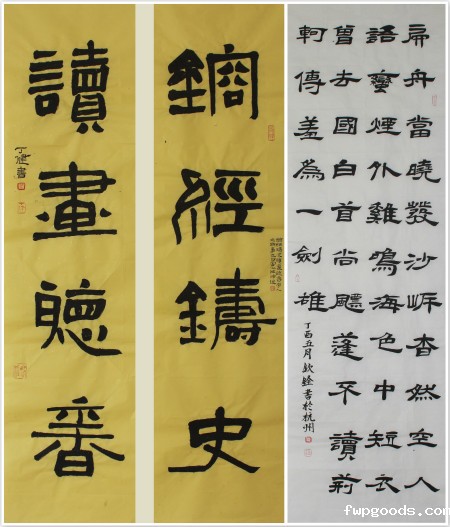 扁舟當曉發沙岸杳然空人
語蠻煙外雞鳴海色中短衣
曾去國白首尚飄蓬不讀荊
軻傳羞為一劍雄
丁酉五月書於杭州
鎔經鑄史
讀畫聽香
fwpgoods.com